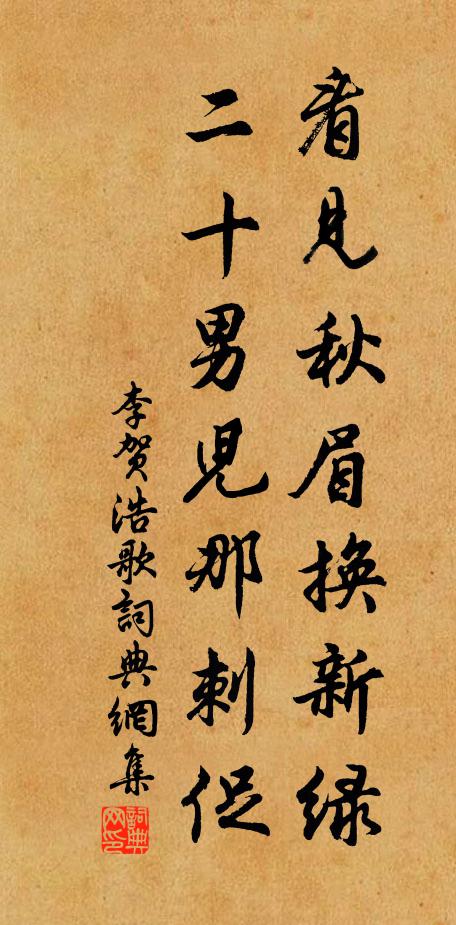 看見秋眉換新緑
二十男児那刺促
李贺浩歌詞典網集
詞典网印